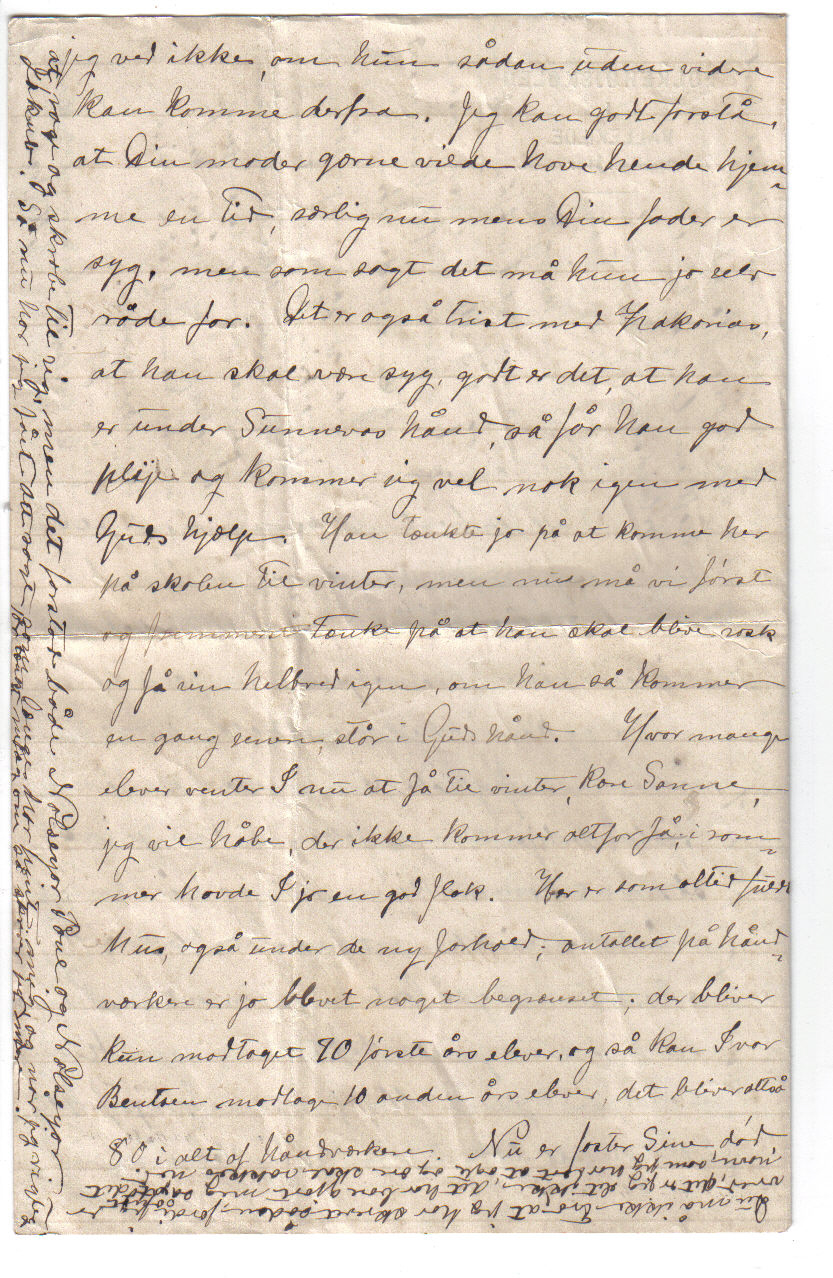 jeg ved ikke, om hun sådan uden videre
kan komme derfra. Jeg kan godt forstå,
at Din moder gærne vilde have hende hjem-
me en tid, særlig nu mens Din fader er
syg, men som sagt det må hun jo selv
råde for. Det er også trist med Zakarias,
at han skal være syg, godt er det, at han
er under Sunnevas hånd, så får han god
pleje og kommer sig vel nok igen med
Guds hjælp. Han tænkte jo på at komme her
på skolen til vinter, men nu må vi først
og fremmest tænke på at han skal blive rask
og få sin helbred igen, om han så kommer
en gang senere, står i Guds hånd. Hvor mange
elever venter I nu at få til vinter, kære Sanne,
jeg vil håbe, der ikke kommer altfor få, i som-
mer havde I jo en god flok. Her er som altid fuldt
hus, også under de ny forhold; antallet på hånd-
værkere er jo blevet noget begrænset; der bliver
kun modtaget 70 første års elever, og så kan Ivar
Bentsen modtage 10 anden års elever, det bliver altså
80 i alt af håndværkere. Nu er faster Sine død,
Du må ikke tro, at jeg har skrevet sådan, fordi jeg er
vred, det er jeg slet ikke, det har bare gjort mig
navn, som jeg har
at og skrive til sig, men det forstod både Nolseyar Poul og Nolseyar
Jakub. Så nu har jeg fået det sagt, som længe har pint mig, og når jeg